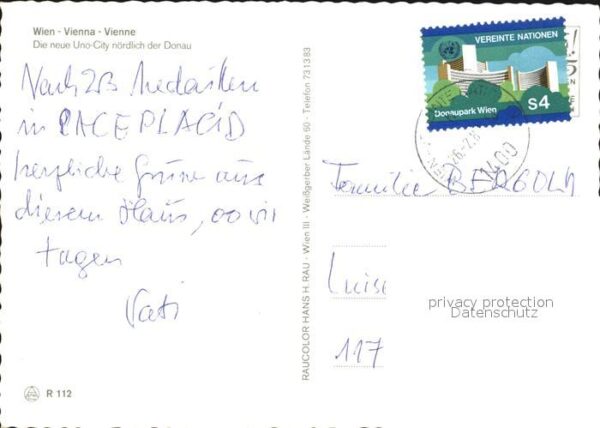 Wien - Vienna - Vienne
Die neue Uno-City nördlich der Donau
Nach 2B Medaillen
in LACEPLACID
herzliche Grüße aus
diesem Haus, wo wir
tagen
Vati
R 112
RAUCOLOR HANS H. RAU · Wien III · Weißgerber Lände 60 · Telefon 73 13 83
VEREINTE NATIONEN
Donaupark Wien
S4
1400
Familie
Luise
117
privacy protection
Datenschutz